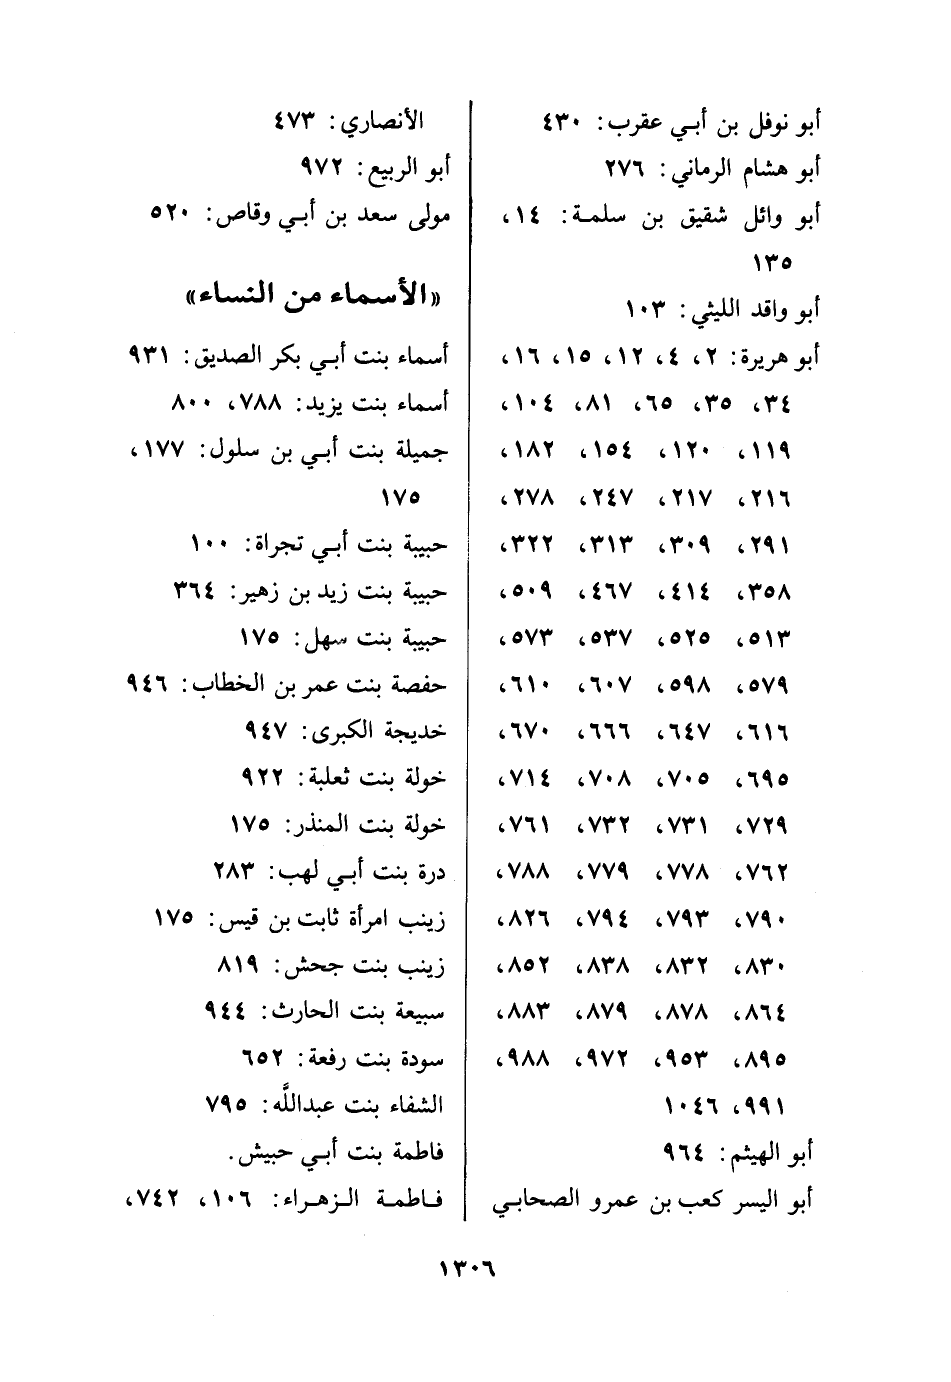 أبو نوفل بن أبي عقرب: ٤٣٠
أبو هشام الرماني: ٢٧٦
أبو وائل شقيق بن سلمة: ١٤،
١٣٥
أبو واقد الليثي: ١٠٣
أبو هريرة: ٢، ٤، ١٢، ١٥، ١٦،
٣٤، ٣٥، ٦٥، ٨١، ١٠٤،
١١٩، ١٢٠، ١٥٤، ١٨٢،
٢١٦، ٢١٧، ٢٤٧، ٢٧٨،
٢٩١، ٣٠٩، ٣١٣، ٣٢٢،
٣٥٨، ٤١٤، ٤٦٧، ٥٠٩،
٥١٣، ٥٢٥، ٥٣٧، ٥٧٣،
٥٧٩، ٥٩٨، ٦٠٧، ٦١٠،
٦١٦، ٦٤٧، ٦٦٦، ٦٧٠،
٦٩٥، ٧٠٥، ٧٠٨، ٧١٤،
٧٢٩، ٧٣١، ٧٣٢، ٧٦١،
٧٦٢، ٧٧٨، ٧٧٩، ٧٨٨،
٧٩٠، ٧٩٣، ٧٩٤، ٨٢٦،
٨٣٠، ٨٣٢، ٨٣٨، ٨٥٢،
٨٦٤، ٨٧٨، ٨٧٩، ٨٨٣،
٨٩٥، ٩٥٣، ٩٧٢، ٩٨٨،
٩٩١، ١٠٤٦
أبو الهيثم: ٩٦٤
أبو اليسر كعب بن عمرو الصحابي
الأنصاري: ٤٧٣
أبو الربيع: ٩٧٢
مولى سعد بن أبي وقاص: ٥٢٠
«الأسماء من النساء»
أسماء بنت أبي بكر الصديق: ٩٣١
أسماء بنت يزيد: ٧٨٨، ٨٠٠
جميلة بنت أبي بن سلول: ١٧٧،
١٧٥
حبيبة بنت أبي تجراة: ١٠٠
حبيبة بنت زيد بن زهير: ٣٦٤
حبيبة بنت سهل: ١٧٥
حفصة بنت عمر بن الخطاب: ٩٤٦
خديجة الكبرى: ٩٤٧
خولة بنت ثعلبة: ٩٢٢
خولة بنت المنذر: ١٧٥
درة بنت أبي لهب: ٢٨٣
زينب امرأة ثابت بن قيس: ١٧٥
زينب بنت جحش: ٨١٩
سبيعة بنت الحارث: ٩٤٤
سودة بنت رفعة: ٦٥٢
الشفاء بنت عبداللَّه: ٧٩٥
فاطمة بنت أبي حبيش.
فاطمة الزهراء: ١٠٦، ٧٤٢،
١٣٠٦